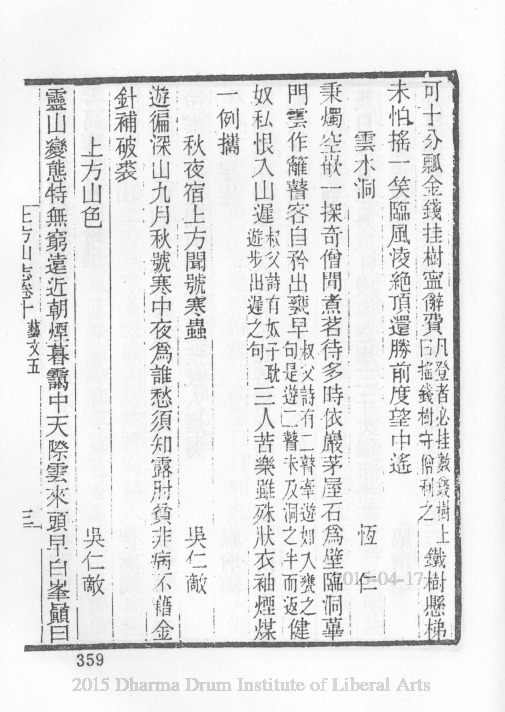 可士分瓢金錢挂樹寍辭費凡登者必挂數錢樹上曰搖錢樹守僧利之鐵樹懸梯
未怕搖一笑臨風凌絶頂還勝前度望中遙
雲水洞 恆仁
秉燭空嵌一探奇僧閒煮茗待多時依巖茅屋石爲壁臨洞蓽
門雲作籬瞽客自矜出甕早叔父詩有二瞽牽遊如入甕之句是遊二瞽未及洞之半而返健
奴私恨入山遲叔父詩有奴子耽遊步出遲之句三人苦樂雖殊狀衣袖煙煤
一例攜
秋夜宿上方聞號寒蟲 吳仁敵
遊徧深山九月秋號寒中夜爲誰愁須知露肘貧非病不藉金
針補破裘
上方山色 吳仁敵
靈山變態特無窮遠近朝煙暮靄中天際雲來頭早白峯巓日
上方山志卷十 藝文五 三
359
2015-04-17
2015 Dharma Drum Institute of Liberal Arts